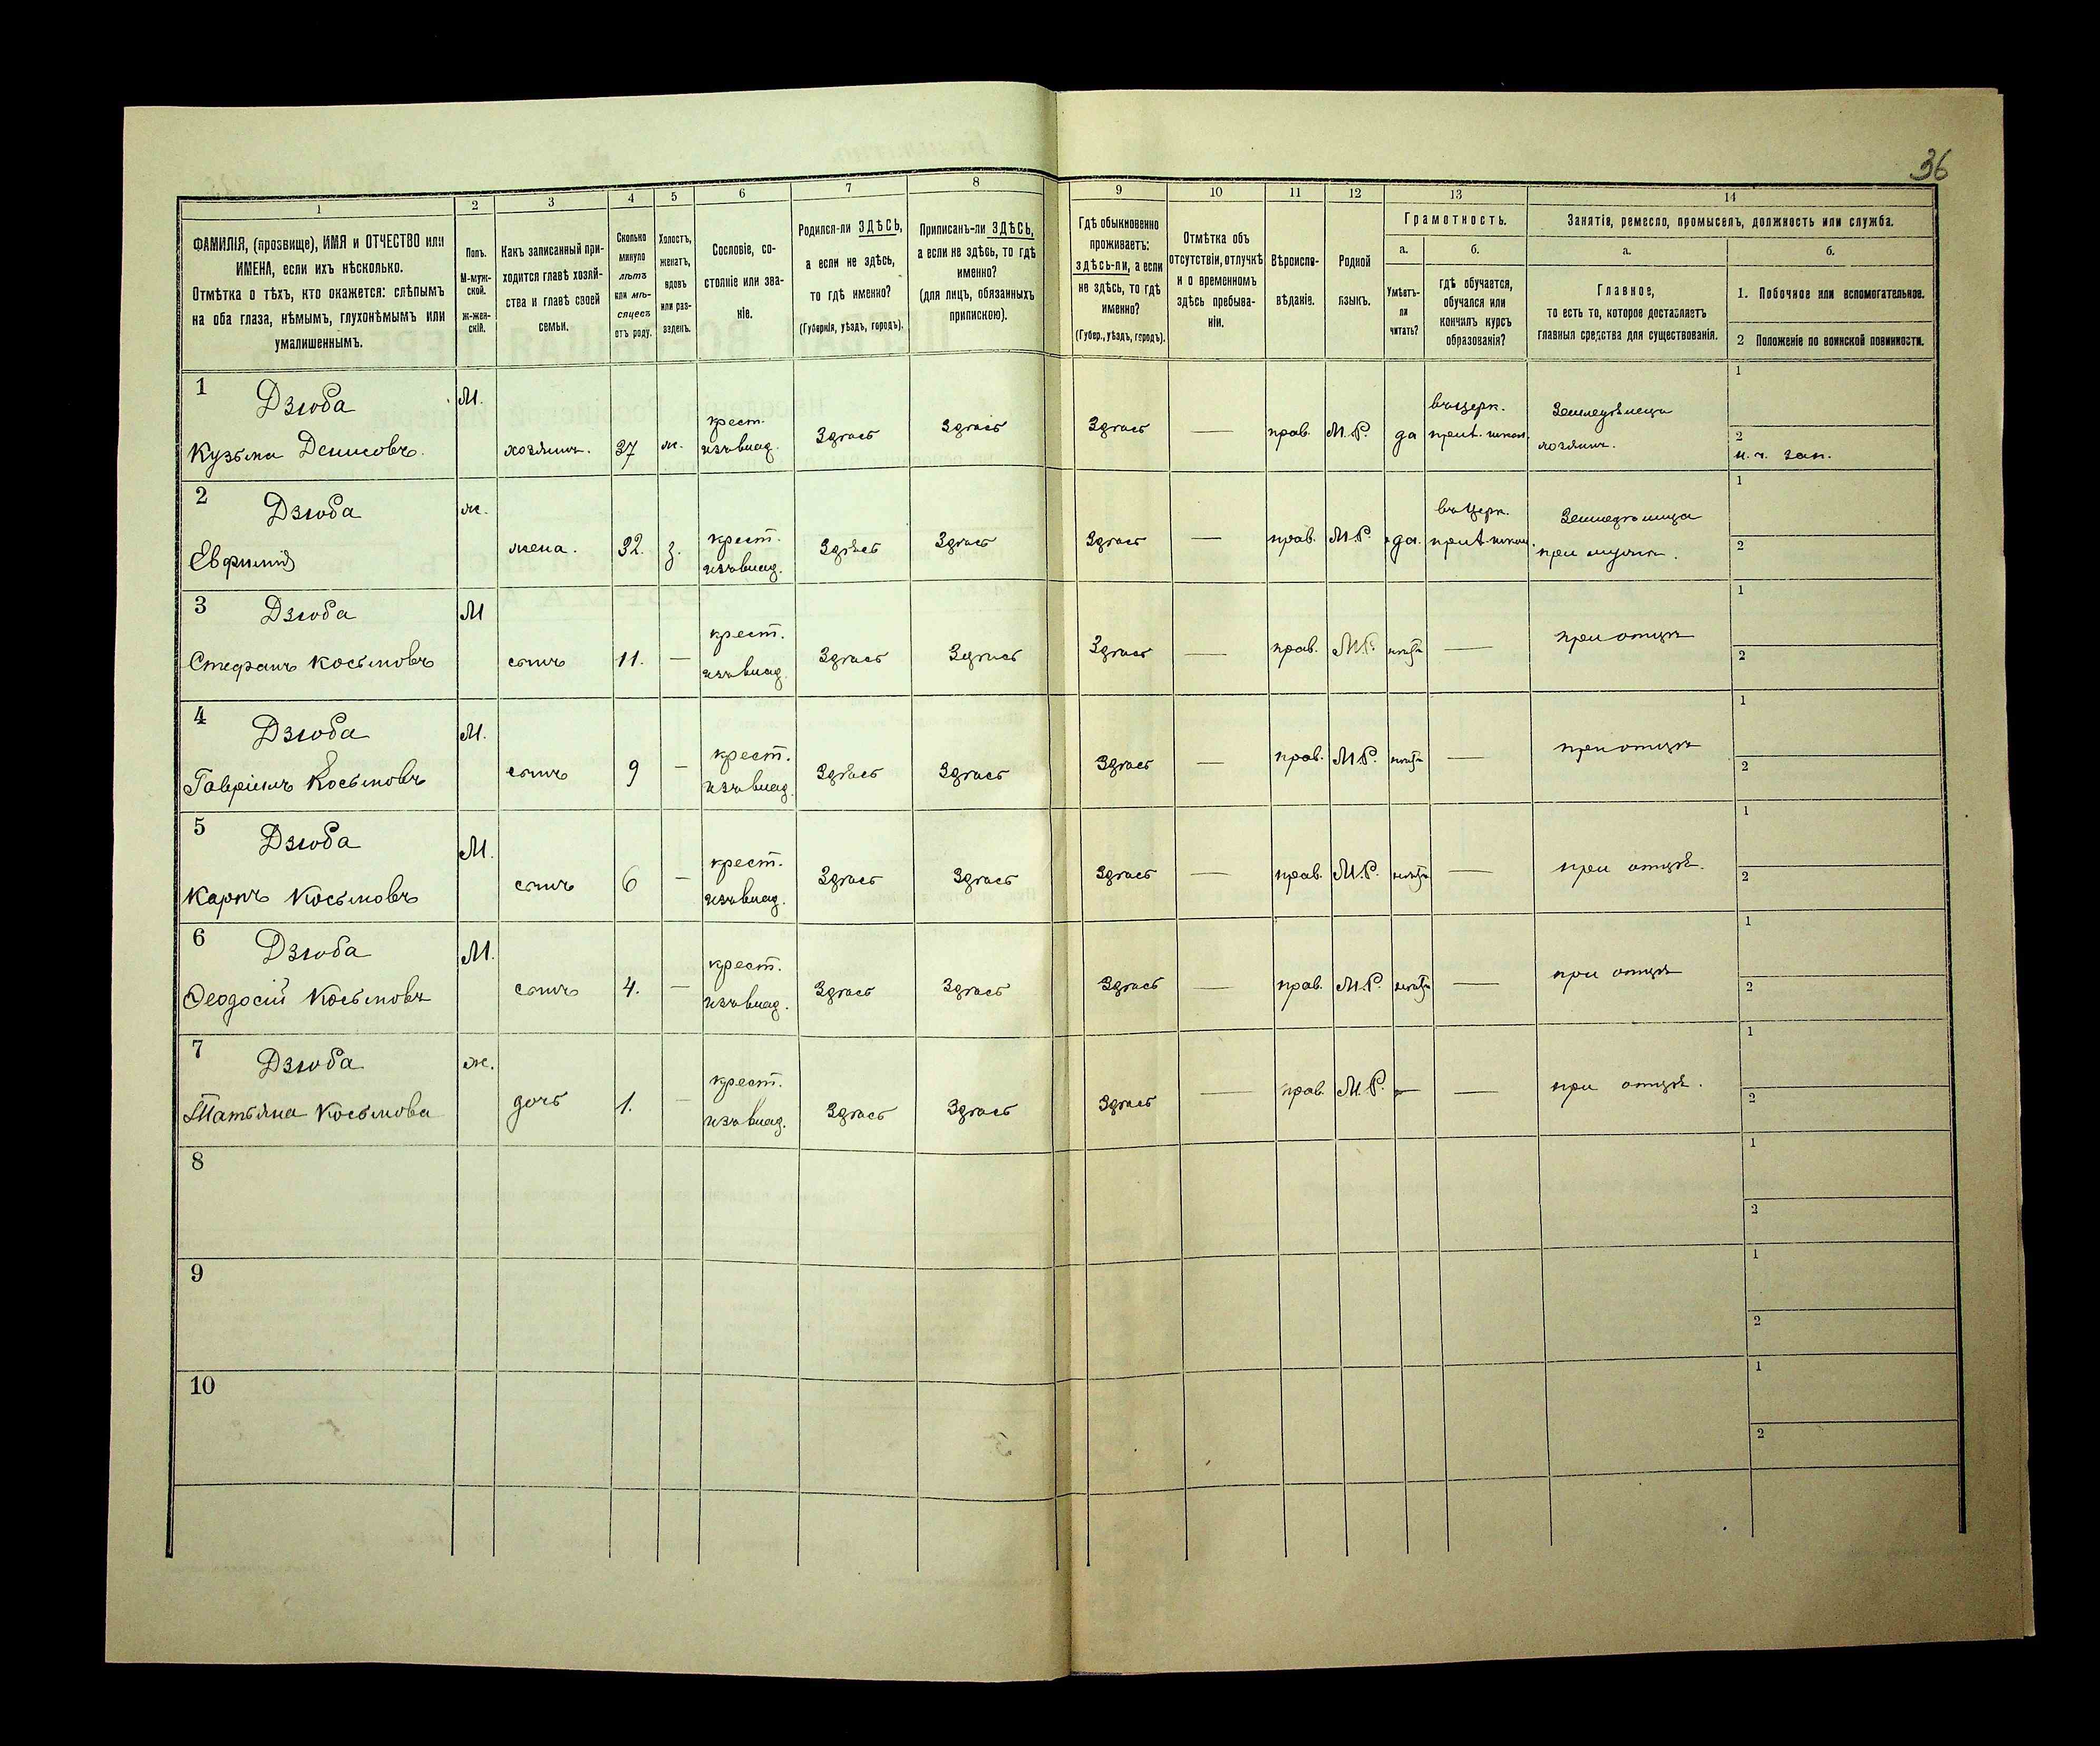 36
1
2
3
4
5
6
7
8
9
10
11
12
13
14
ФАМИЛІЯ, (прозвище), ИМЯ и ОТЧЕСТВО или
ИМЕНА, если ихъ нѣсколько.
Отмѣтка о тѣхъ, кто окажется: слѣпымъ
на оба глаза, нѣмымъ, глухонѣмымъ или
умалишеннымъ.
Полъ.
М-муж-
ской.
ж-жен-
скій.
Какъ записанный при-
ходится главѣ хозяй-
ства и главѣ своей
семьи.
Сколько
минуло
лѣтъ
или мѣ-
сяцевъ
отъ роду.
Холостъ,
женатъ,
вдовъ
или раз-
веденъ.
Сословіе, со-
стояніе или зва-
ніе.
Родился-ли ЗДѢСЬ,
а если не здѣсь,
то гдѣ именно?
(Губернія, уѣздъ, городъ).
Приписанъ-ли ЗДѢСЬ,
а если не здѣсь, то гдѣ
именно?
(для лицъ, обязанныхъ
припискою).
Гдѣ обыкновенно
проживаетъ:
здѣсь-ли, а если
не здѣсь, то гдѣ
именно?
(Губер., уѣздъ, городъ).
Отмѣтка объ
отсутствіи, отлучкѣ
и о временномъ
здѣсь пребыва-
ніи.
Вѣроиспо-
вѣданіе.
Родной
языкъ.
Грамотность.
а.
Умѣетъ-
ли
читать?
б.
гдѣ обучается,
обучался или
кончилъ курсъ
образованія?
Занятіе, ремесло, промыселъ, должность или служба.
а.
Главное,
то есть то, которое доставляетъ
главныя средства для существованія.
б.
1. Побочное или вспомогательное.
2 Положеніе по воинской повинности.
1 Дзюба М. крест. въ церк. Земледѣлецъ 1
Кузьма Денисовъ. хозяинъ. 37 ж. изъ влад. Здѣсь Здѣсь Здѣсь — прав. М.Р. да прих. школ. хозяинъ. 2
н. ч. зап.
2 Дзюба ж. крест. въ церк. 1
Евфимія жена. 32. з. изъ влад. Здѣсь Здѣсь Здѣсь — прав. М.Р. да. прих. школ. при мужѣ. 2
3 Дзюба М крест. 1
Стефанъ Косьмовъ сынъ 11. — изъ влад. Здѣсь Здѣсь Здѣсь — прав. М.Р. — при отцѣ 2
4 Дзюба М. крест. 1
Гавріилъ Косьмовъ сынъ 9 — изъ влад. Здѣсь Здѣсь Здѣсь — прав. М.Р. — при отцѣ 2
5 Дзюба М. крест. 1
Карпъ Косьмовъ сынъ 6 — изъ влад. Здѣсь Здѣсь Здѣсь — прав. М.Р. — при отцѣ. 2
6 Дзюба М. крест. 1
Ѳеодосій Косьмовъ сынъ 4. — изъ влад. Здѣсь Здѣсь Здѣсь — прав. М.Р. — при отцѣ 2
7 Дзюба ж. крест. 1
Татьяна Косьмова дочь 1. — изъ влад. Здѣсь Здѣсь Здѣсь — прав. М.Р. — — при отцѣ. 2
8 1
2
9 1
2
10 1
2